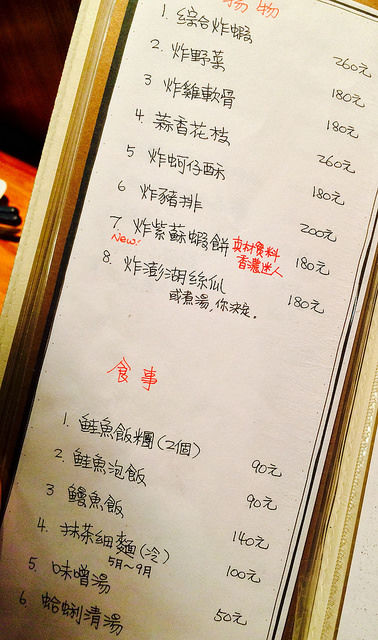 揚物
1. 綜合炸蝦 260元
2. 炸野菜 180元
3 炸雞軟骨 180元
4. 蒜香花枝 260元
5 炸蚵仔酥 180元
6 炸豬排 200元
7. 炸紫蘇蝦餅 真材實料 180元
New! 香濃迷人
8. 炸澎湖絲瓜 180元
或煮湯,你決定。
食事
1. 鮭魚飯糰(2個) 90元
2. 鮭魚泡飯 90元
3 鰻魚飯 140元
4. 抹茶細麵(冷) 100元
5月~9月
5. 味噌湯 50元
6. 蛤蜊清湯